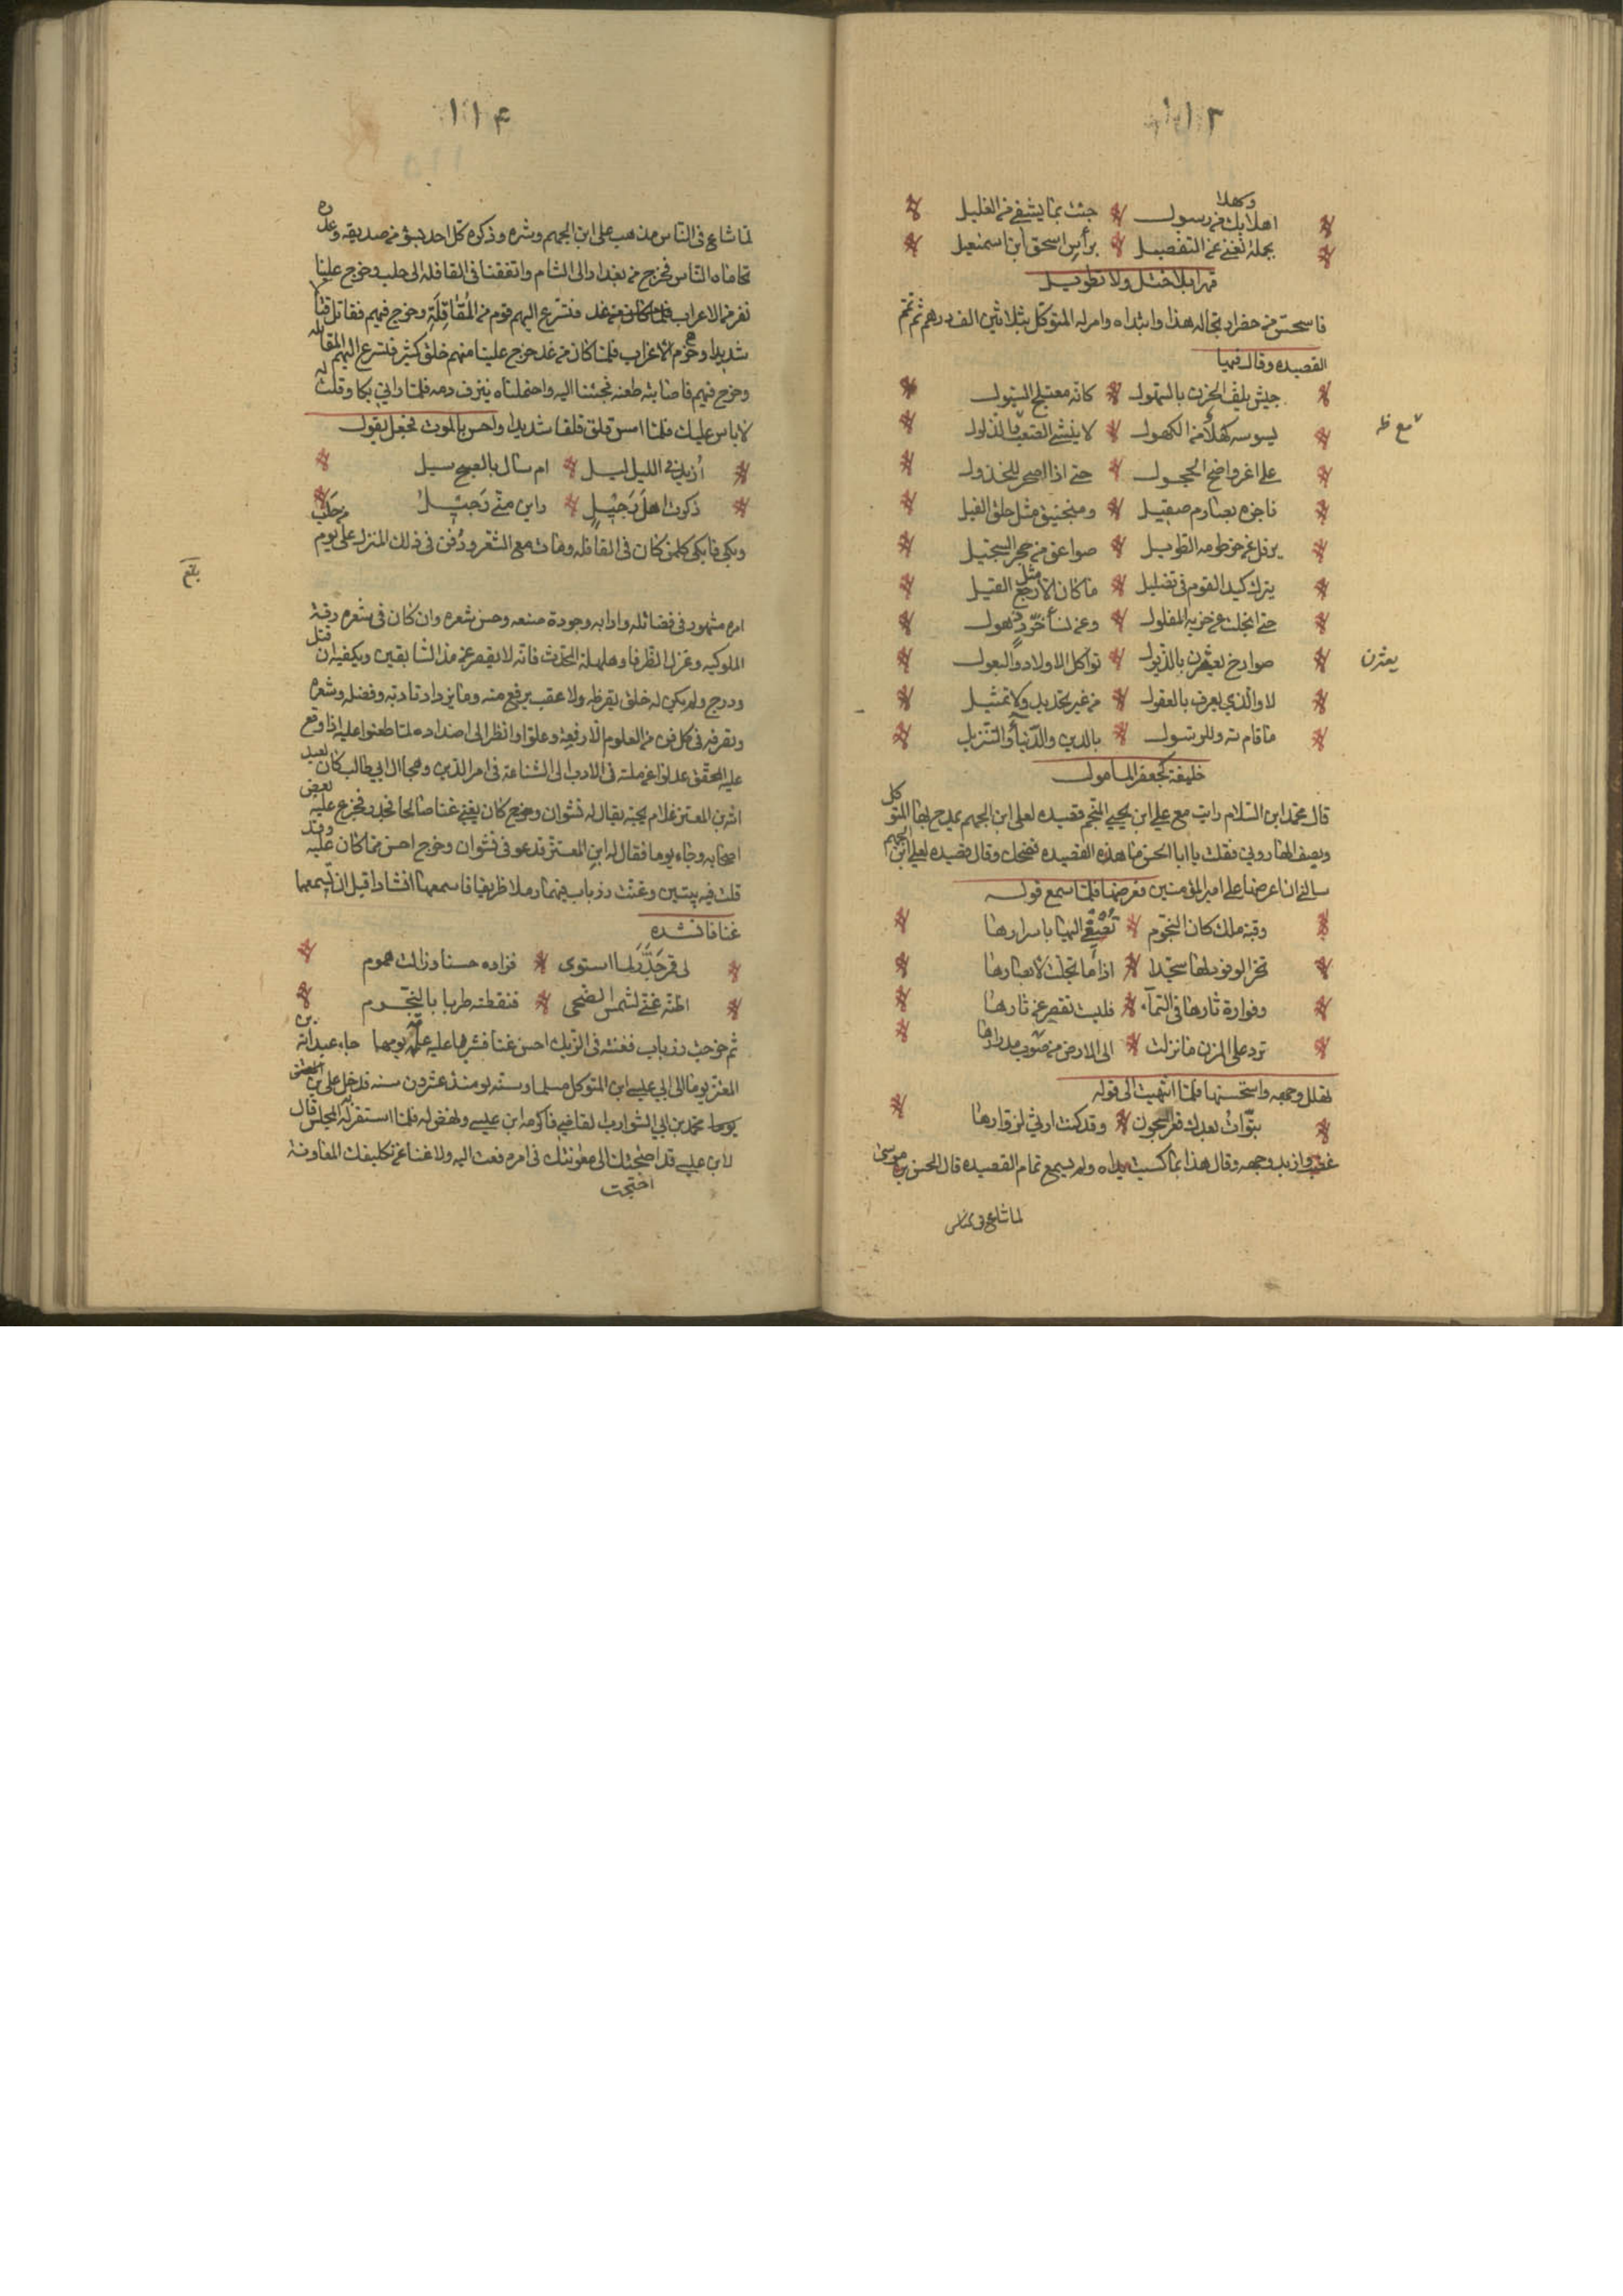 ١١٣
اهلا بك من رسول جئت بما يشفي من الغليل
وكهلا
بجملة تغني عن التفصيل برأس اسحق ابن اسمعيل
قهرا بلا ختل ولا تطويل
فاستحسن من حضر ارتجاله هذا وابتداه وامر له المتوكل بثلاثين الف درهم ثم تمم
القصيده وقال فيها
جيش يلف الحزن بالسهول كانه معتلج السيول
يسوسه كهل من الكهول لا ينثني للصعب والذلول
على اغر واضح الحجول حتى اذا اصحر للمخذول
ناجزه بصارم صقيل ومنجنيق مثل حلق الفيل
يرفل عن خرطومه الطويل صواعق من حجر السجيل
يترك كيد القوم في تضليل ما كان الا مثل رجع القيل
حتى انجلت عن حزبه المفلول وعن نساء حُوّر ذهول
صوارخ يعثرن بالذيول ثواكل الاولاد والبعول
يعثرن
لا والذي يعرف بالعقول من غير تحديد ولا تمثيل
ما قام لله وللرسول بالدين والدنيا والتنزيل
خليفة كجعفر المامول
قال محمد ابن السلام رايت مع علي ابن يحيى المنجم قصيده لعلي ابن الجهم يمدح بها المتوكل
ويصف الهاروني فقلت يا ابا الحسن ما هذه القصيده فضحك وقال قصيده لعلي ابن الجهم
سالني ان اعرضها على امير المؤمنين فعرضها فلما سمع قوله
وقبة ملك كان النجوم تصغي اليها باسرارها
تخر الوفود لها سجدا اذا ما تجلت لابصارها
وفوارة ثارها في السمآء فليست تقصر عن ثارها
ترد على المزن ما نزلت الى الارض من صوب مدرارها
تهلل وجهه واستحسنها فلما انتهيت الى قوله
تبوأت بعدك قعر السجون وقد كنت ارثي لزوارها
غضب واربد وجهه وقال هذا بما كسبت يداه ولم يسمع تمام القصيده قال الحسن بن موسى
لما شاع في الناس
١١٤
لما شاع في الناس مذهب علي ابن الجهم وشره وذكره كل احد بسؤ من صديقه وعدوه
تحاماه الناس فخرج من بغداد الى الشام واتفقنا في القافلة الى حلب وخرج علينا
نفر من الاعراب فتسرع اليهم قوم من المُقاتِلَةِ وخرج فيهم فقاتل قتالا
شديدا وهزم الاعراب فلما كان من غد خرج علينا منهم خلق كثير فتسرع اليهم المقاتله
وخرج فيهم فاصابته طعنه فجئنا اليه واحتملناه ينزف دمه فلما راني بكا وقلت له
لا باس عليك فلما امسى قلق قلقا شديدا واحس بالموت فجعل يقول
أزيد في الليل ليل ام سال بالصبح سيل
ذكرت اهل دُجَيلٍ واين مني دُجَيلُ
وبكى فابكى كل من كان في القافله ومات مع السحر ودُفن في ذلك المنزل على يوم من حلب
امره مشهود في فضائله وادابه وجودة صنعه وحسن شعره وان كان في شعره رقة
الملوكيه وغزل الظرفا وهلهلة المحدث فانه لا يقصر عن مدى السابقين ويكفيه ان قتل
ودرج ولم يكن له خلق يقرظه ولا عقب يرفع منه وما يزداد تادبه وفضله وشعره
وتصرفه في كل فن من العلوم الا رفعة وعلوا وانظر الى اضداده لما طعنوا عليه اذا وقع
عليه المحقق عدلوا عن مثلته في الادب الى الشناعة في امر الدين وهجا ال ابي طالب كان لعبد
الله بن المعتز غلام يحبه يقال له نشوان وخرج كان يغني غنا صالحا فجدر فجزع عليه بعض
اصحابه وجاء يوما فقال له ابن المعتز قد عوفى نشوان وخرج احسن مما كان عليه وقد
قلت فيه بيتين وغنت زرياب فيهما رملا ظريفا فاسمعهما انشادا قبل ان تسمعهما
غنا فانشده
لي قمر جُدّر لما استوى فزاده حسنا وزالت هموم
اظنه غنى لشمس الضحى فنقطته طربا بالنجوم
ثم خرجت زرياب فغنته في الزيك احسن غنا فشربها عليه عامّة يومها جاء عبد الله بن
المعتز يوما الى ابي عيسى ابن المتوكل مسلما وسنه يومئذ عشرون سنه فدخل علي بن
محمد بن ابي الشوارب القاضي فاكرمه ابن عيسى ونهض له فلما استقر به المجلس قال
لابن عيسى قد احتجت الى معونتك في امره فعت اليه ولا غنا عن تكليفك المعاونة
احتجت